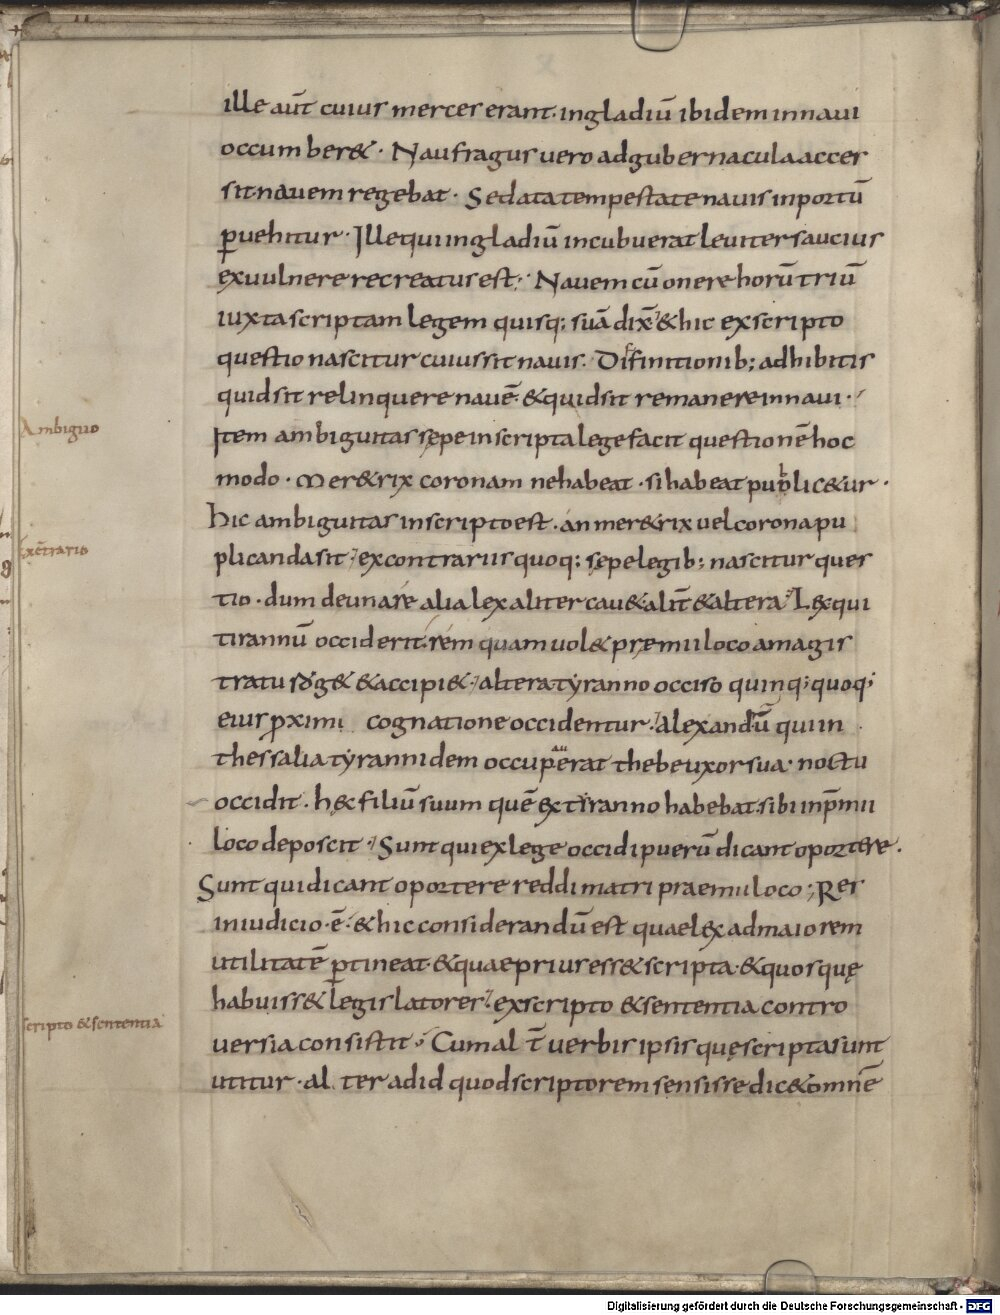 ille aūt cuius merces erant· in gladiū ibidem in naui
occumber&· Naufragus uero ad gubernacula acces
sit· nauem regebat· Sedata tempestate nauis in portū
ꝑuehitur· Ille qui in gladiū incubuerat leuiter saucius
ex uulnere recreatus est;· Nauem cū onere horū triū
iuxta scriptam legem quisq; suā dix̄· & hic ex scripto
questio nascitur cuius sit nauis· Difinitionib; adhibitis
quid sit relinquere nauē· & quid sit remanere in naui·
Ambiguo
Item ambiguitas sępe in scripta lege facit questionē hoc
modo· Mer&rix coronam ne habeat· si habeat public&ur·
Hic ambiguitas in scripto est· an mer&rix uel corona pu
Ex c̄trariis
plicanda sit· ex contrariis quoq; sępe legib; nascitur ques
tio· dum de una re alia lex aliter cau& alit̄ & altera· Lex qui
tirannū occiderit· rem quam uol& pręmii loco a magis
tratu sorg& & accipi&· altera tyranno occiso quinq; quoq;
eius ꝓximi cognatione occidentur· Alexandrū qui in
thessalia tyrannidem occupauerat thebe uxor sua· noctu
occidit· hęc filiū suum quē ex tiranno habebat· sibi in p̄mii
loco deposcit· Sunt qui ex lege occidi puerū dicant oportere·
Sunt qui dicant oportere reddi matri praemii loco; Res
in iudicio·ē· & hic considerandū est quae lex ad maiorem
utilitatē ꝑtineat· & quae prius ess& scripta· & quos quę
habuiss& legislatores· ex scripto & sententia contro
scripto & sententia
uersia consistit· Cum alt̄ uerbis ipsis quę scripta sunt
utitur· al ter ad id quod scriptorem sensisse dic& omnē
Digitalisierung gefördert durch die Deutsche Forschungsgemeinschaft - DFG